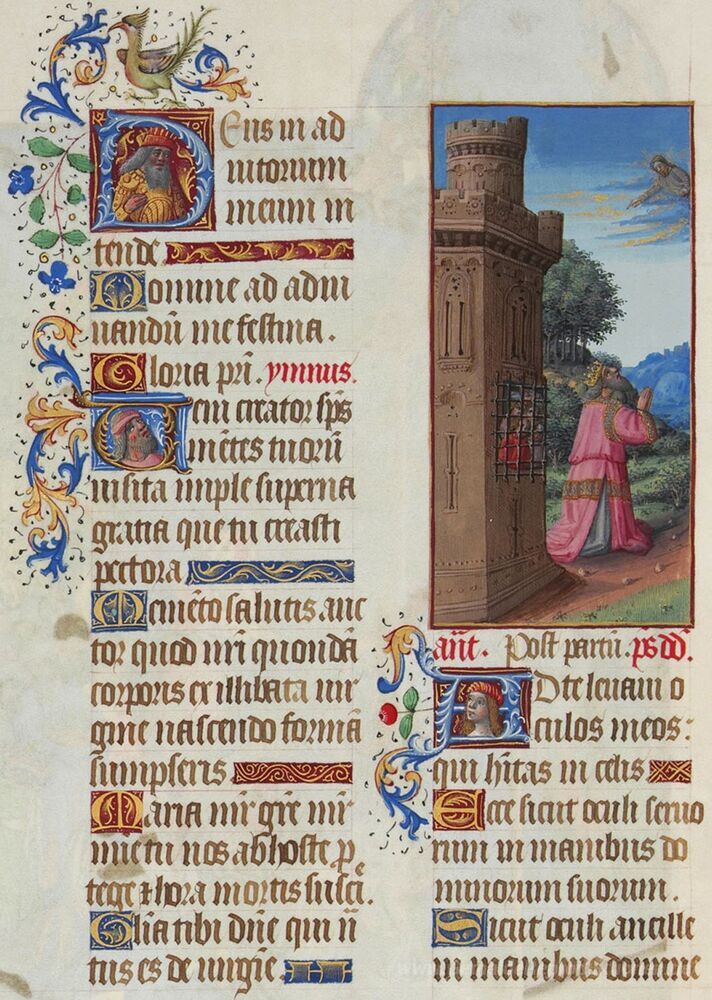 Deus in ad
iutorium
meum in
tende
Domine ad adiu
uandū me festina.
Gloria pri. ymnus.
Veni creator sp̄s
mētes tuorū
uisita imple superna
gratia que tu creasti
pectora
Memēto salutis auc
tor quod nr̄i quondā
corporis ex illibata uir
gine nascendo formā
sumpseris
Maria mr̄ gr̄e mr̄
mie tu nos ab hoste p̄
tege & hora mortis suscī.
Gl̄ia tibi dn̄e qui n̄
tus es de uirgīe
ant̄. Post partū. p̄s dd̄.
Ad te leuaui o
culos meos:
qui hītas in celis
Ecce sicut oculi seruo
rum in manibus do
minorum suorum.
Sicut oculi ancille
in manibus domine